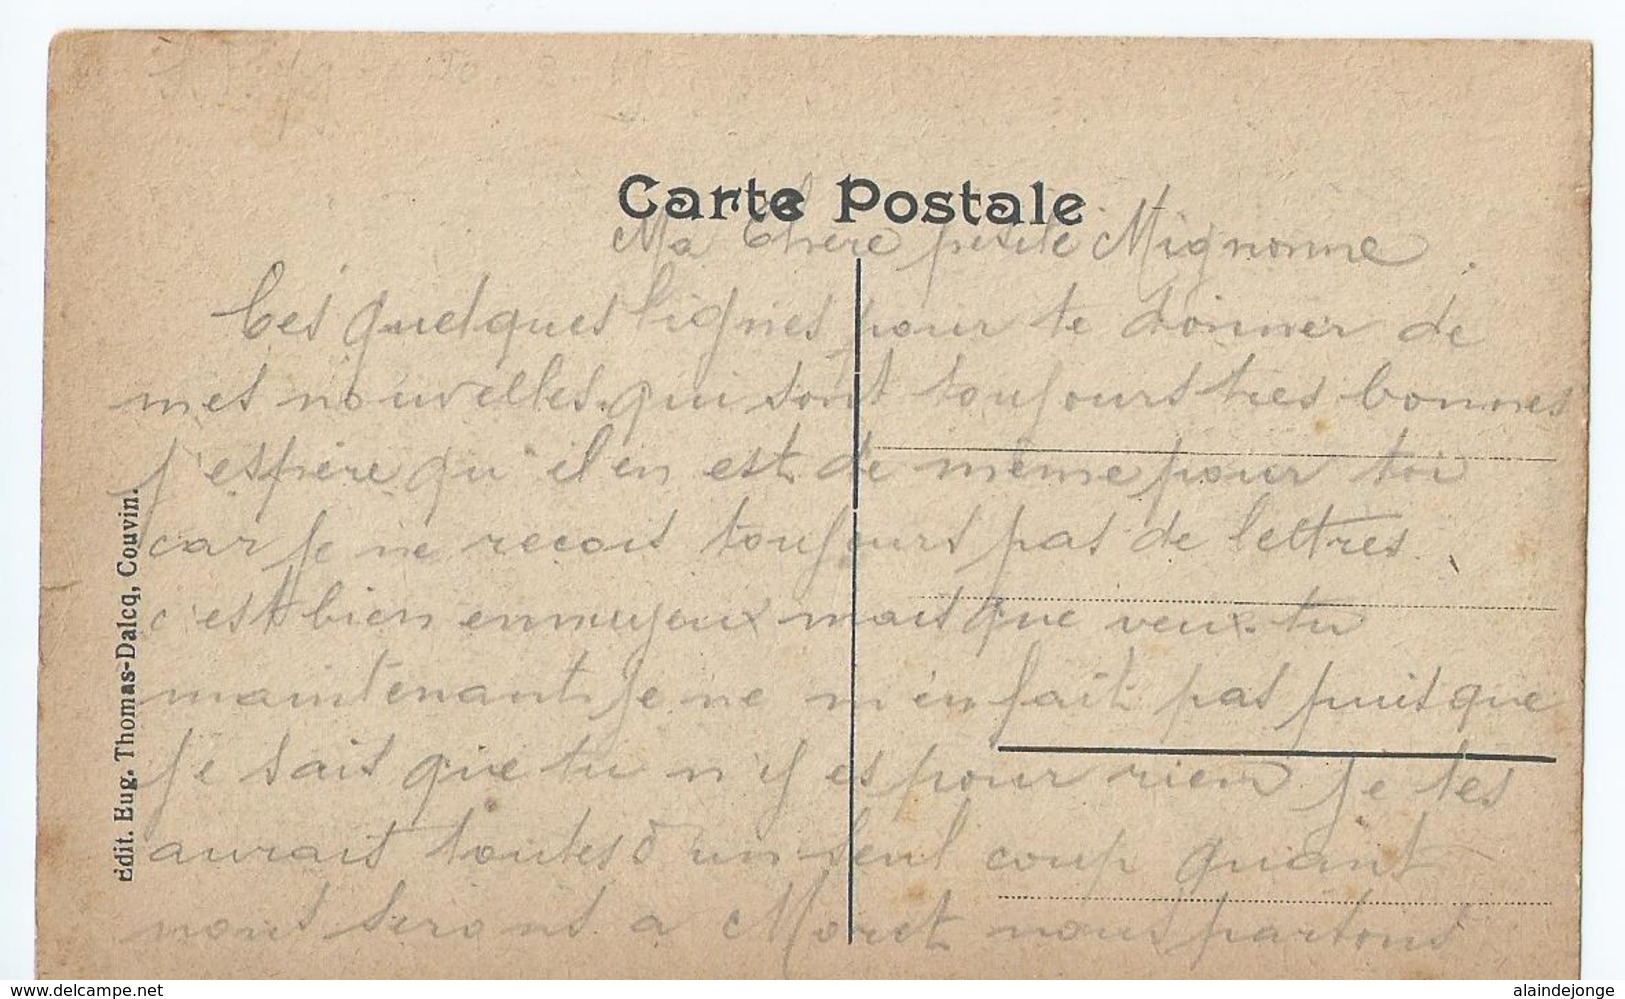 Carte Postale
Ma Chère petite Mignonne
Ces quelques lignes pour te donner de
mes nouvelles. qui sont toujours tres bonnes
j'espère qu'il en est de même pour toi
car je ne recois toujours pas de lettres.
c'est bien ennuyeux mais que veux-tu
maintenant je ne m'en fait pas puisque
je sais que tu n'y es pour rien je les
aurait toutes d un seul coup quant
nous serons a Moret nous partons
Edit. Eug. Thomas-Dalcq, Couvin.
www.delcampe.net
alaindejonge